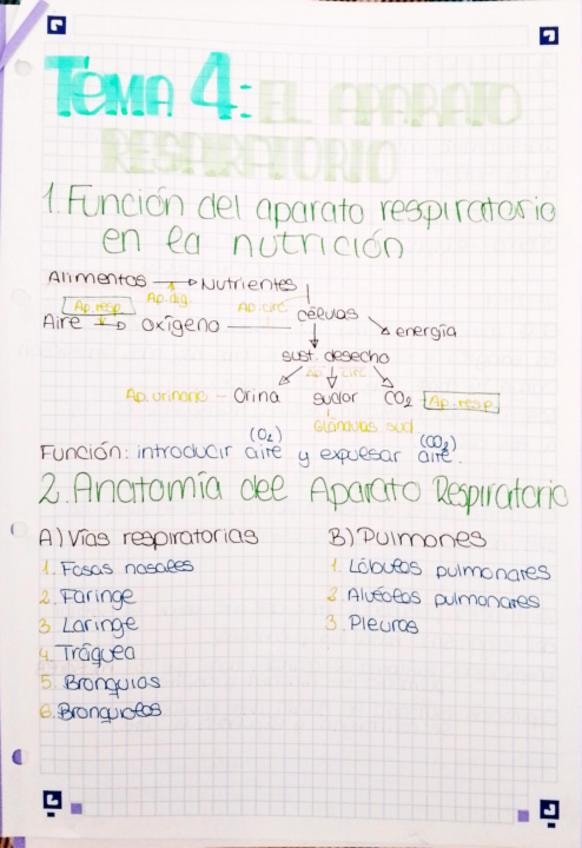 TEMA 4: EL APARATO
RESPIRATORIO
1. Función del aparato respiratorio
en la nutrición
Alimentos → Nutrientes
Ap. resp. Ap. dig. Ap. circ.
Aire → Oxígeno células energía
sust. desecho
Ap. circ.
Ap. urinario - Orina sudor CO2 Ap. resp.
Glándulas sud.
(O2) (CO2)
Función: introducir aire y expulsar aire.
2. Anatomía del Aparato Respiratorio
A) Vías respiratorias B) Pulmones
1. Fosas nasales 1. Lóbulos pulmonares
2. Faringe 2. Alvéolos pulmonares
3 Laringe 3. Pleuras
4. Tráquea
5. Bronquios
6. Bronquiolos